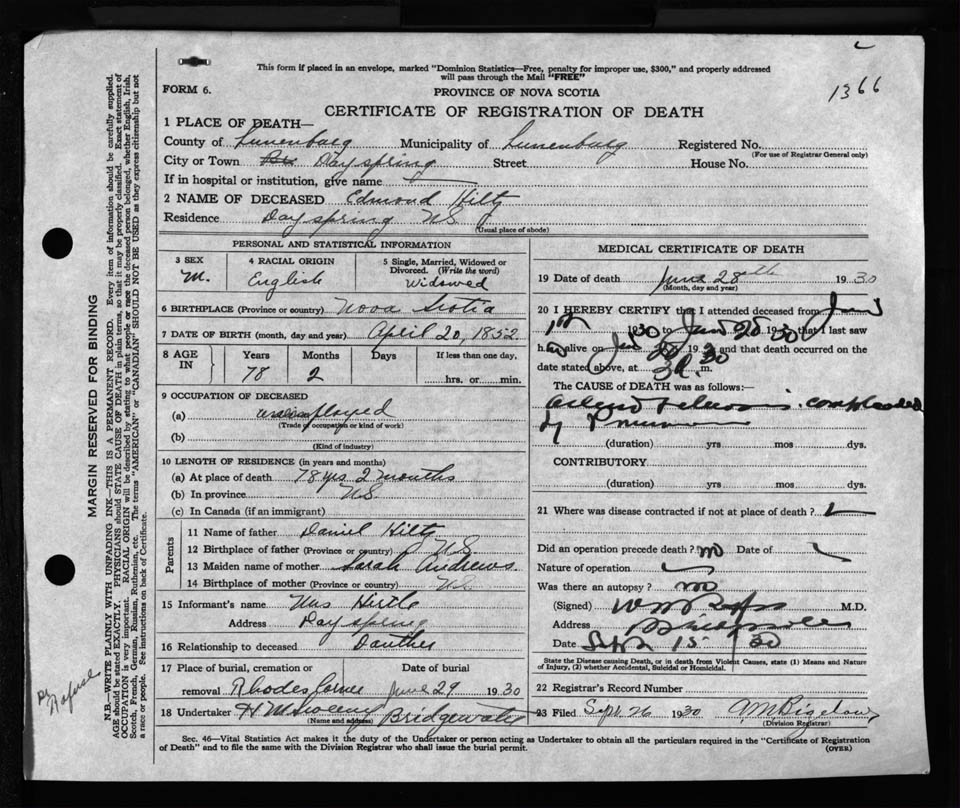 This form if placed in an envelope, marked "Dominion Statistics—Free, penalty for improper use, $300," and properly addressed
will pass through the Mail "FREE"
1366
FORM 6.
PROVINCE OF NOVA SCOTIA
CERTIFICATE OF REGISTRATION OF DEATH
1 PLACE OF DEATH—
County of Lunenburg Municipality of Lunenburg Registered No.
(For use of Registrar General only)
City or Town Dayspring Street House No.
If in hospital or institution, give name
2 NAME OF DECEASED Edmond Hiltz
Residence Dayspring NS
(Usual place of abode)
PERSONAL AND STATISTICAL INFORMATION
3 SEX 4 RACIAL ORIGIN 5 Single, Married, Widowed or
Divorced. (Write the word)
M. English Widowed
6 BIRTHPLACE (Province or country) Nova Scotia
7 DATE OF BIRTH (month, day and year) April 20, 1852
8 AGE IN Years Months Days If less than one day,
78 2 hrs. or min.
9 OCCUPATION OF DECEASED
(a) unemployed
(Trade of occupation or kind of work)
(b)
(Kind of industry)
10 LENGTH OF RESIDENCE (in years and months)
(a) At place of death 78 yrs 2 months
(b) In province NS
(c) In Canada (if an immigrant)
Parents
11 Name of father Daniel Hiltz
12 Birthplace of father (Province or country) NS
13 Maiden name of mother Sarah Andrews
14 Birthplace of mother (Province or country) NS
15 Informant's name Mrs Hirtle
Address Dayspring
16 Relationship to deceased
17 Place of burial, cremation or Date of burial
removal Rhodes Corner June 29 1930
18 Undertaker H M
(Name and address) Bridgewater
MEDICAL CERTIFICATE OF DEATH
19 Date of death June 28th 1930
(Month, day and year)
20 I HEREBY CERTIFY that I attended deceased from June
1st 1930 to June 28 1930 that I last saw
h alive on June 28 1930 and that death occurred on the
date stated above, at 3 m.
The CAUSE of DEATH was as follows:—
by
(duration) yrs mos dys.
CONTRIBUTORY
(duration) yrs. mos. dys.
21 Where was disease contracted if not at place of death?
Did an operation precede death? no Date of
Nature of operation
Was there an autopsy? no
(Signed) M.D.
Address
Date Sept 15 30
State the Disease causing Death, or in death from Violent Causes, state (1) Means and Nature
of Injury, (2) whether Accidental, Suicidal or Homicidal.
22 Registrar's Record Number
23 Filed Sept 26 1930 A M Bigelow
(Division Registrar)
Sec. 46—Vital Statistics Act makes it the duty of the Undertaker or person acting as Undertaker to obtain all the particulars required in the "Certificate of Registration
of Death" and to file the same with the Division Registrar who shall issue the burial permit.
(OVER)
MARGIN RESERVED FOR BINDING
N.B.—WRITE PLAINLY WITH UNFADING INK—THIS IS A PERMANENT RECORD. Every item of information should be carefully supplied.
AGE should be stated EXACTLY. PHYSICIANS should STATE CAUSE OF DEATH in plain terms, so that it may be properly classified. Exact statement of
OCCUPATION is very important. RACIAL ORIGIN will be described by stating to what people or race the deceased person belonged, whether English, Irish,
Scotch, French, German, Russian, Ruthenian, etc. The terms "AMERICAN" or "CANADIAN" SHOULD NOT BE USED as they express citizenship but not
a race or people. See instructions on back of Certificate.